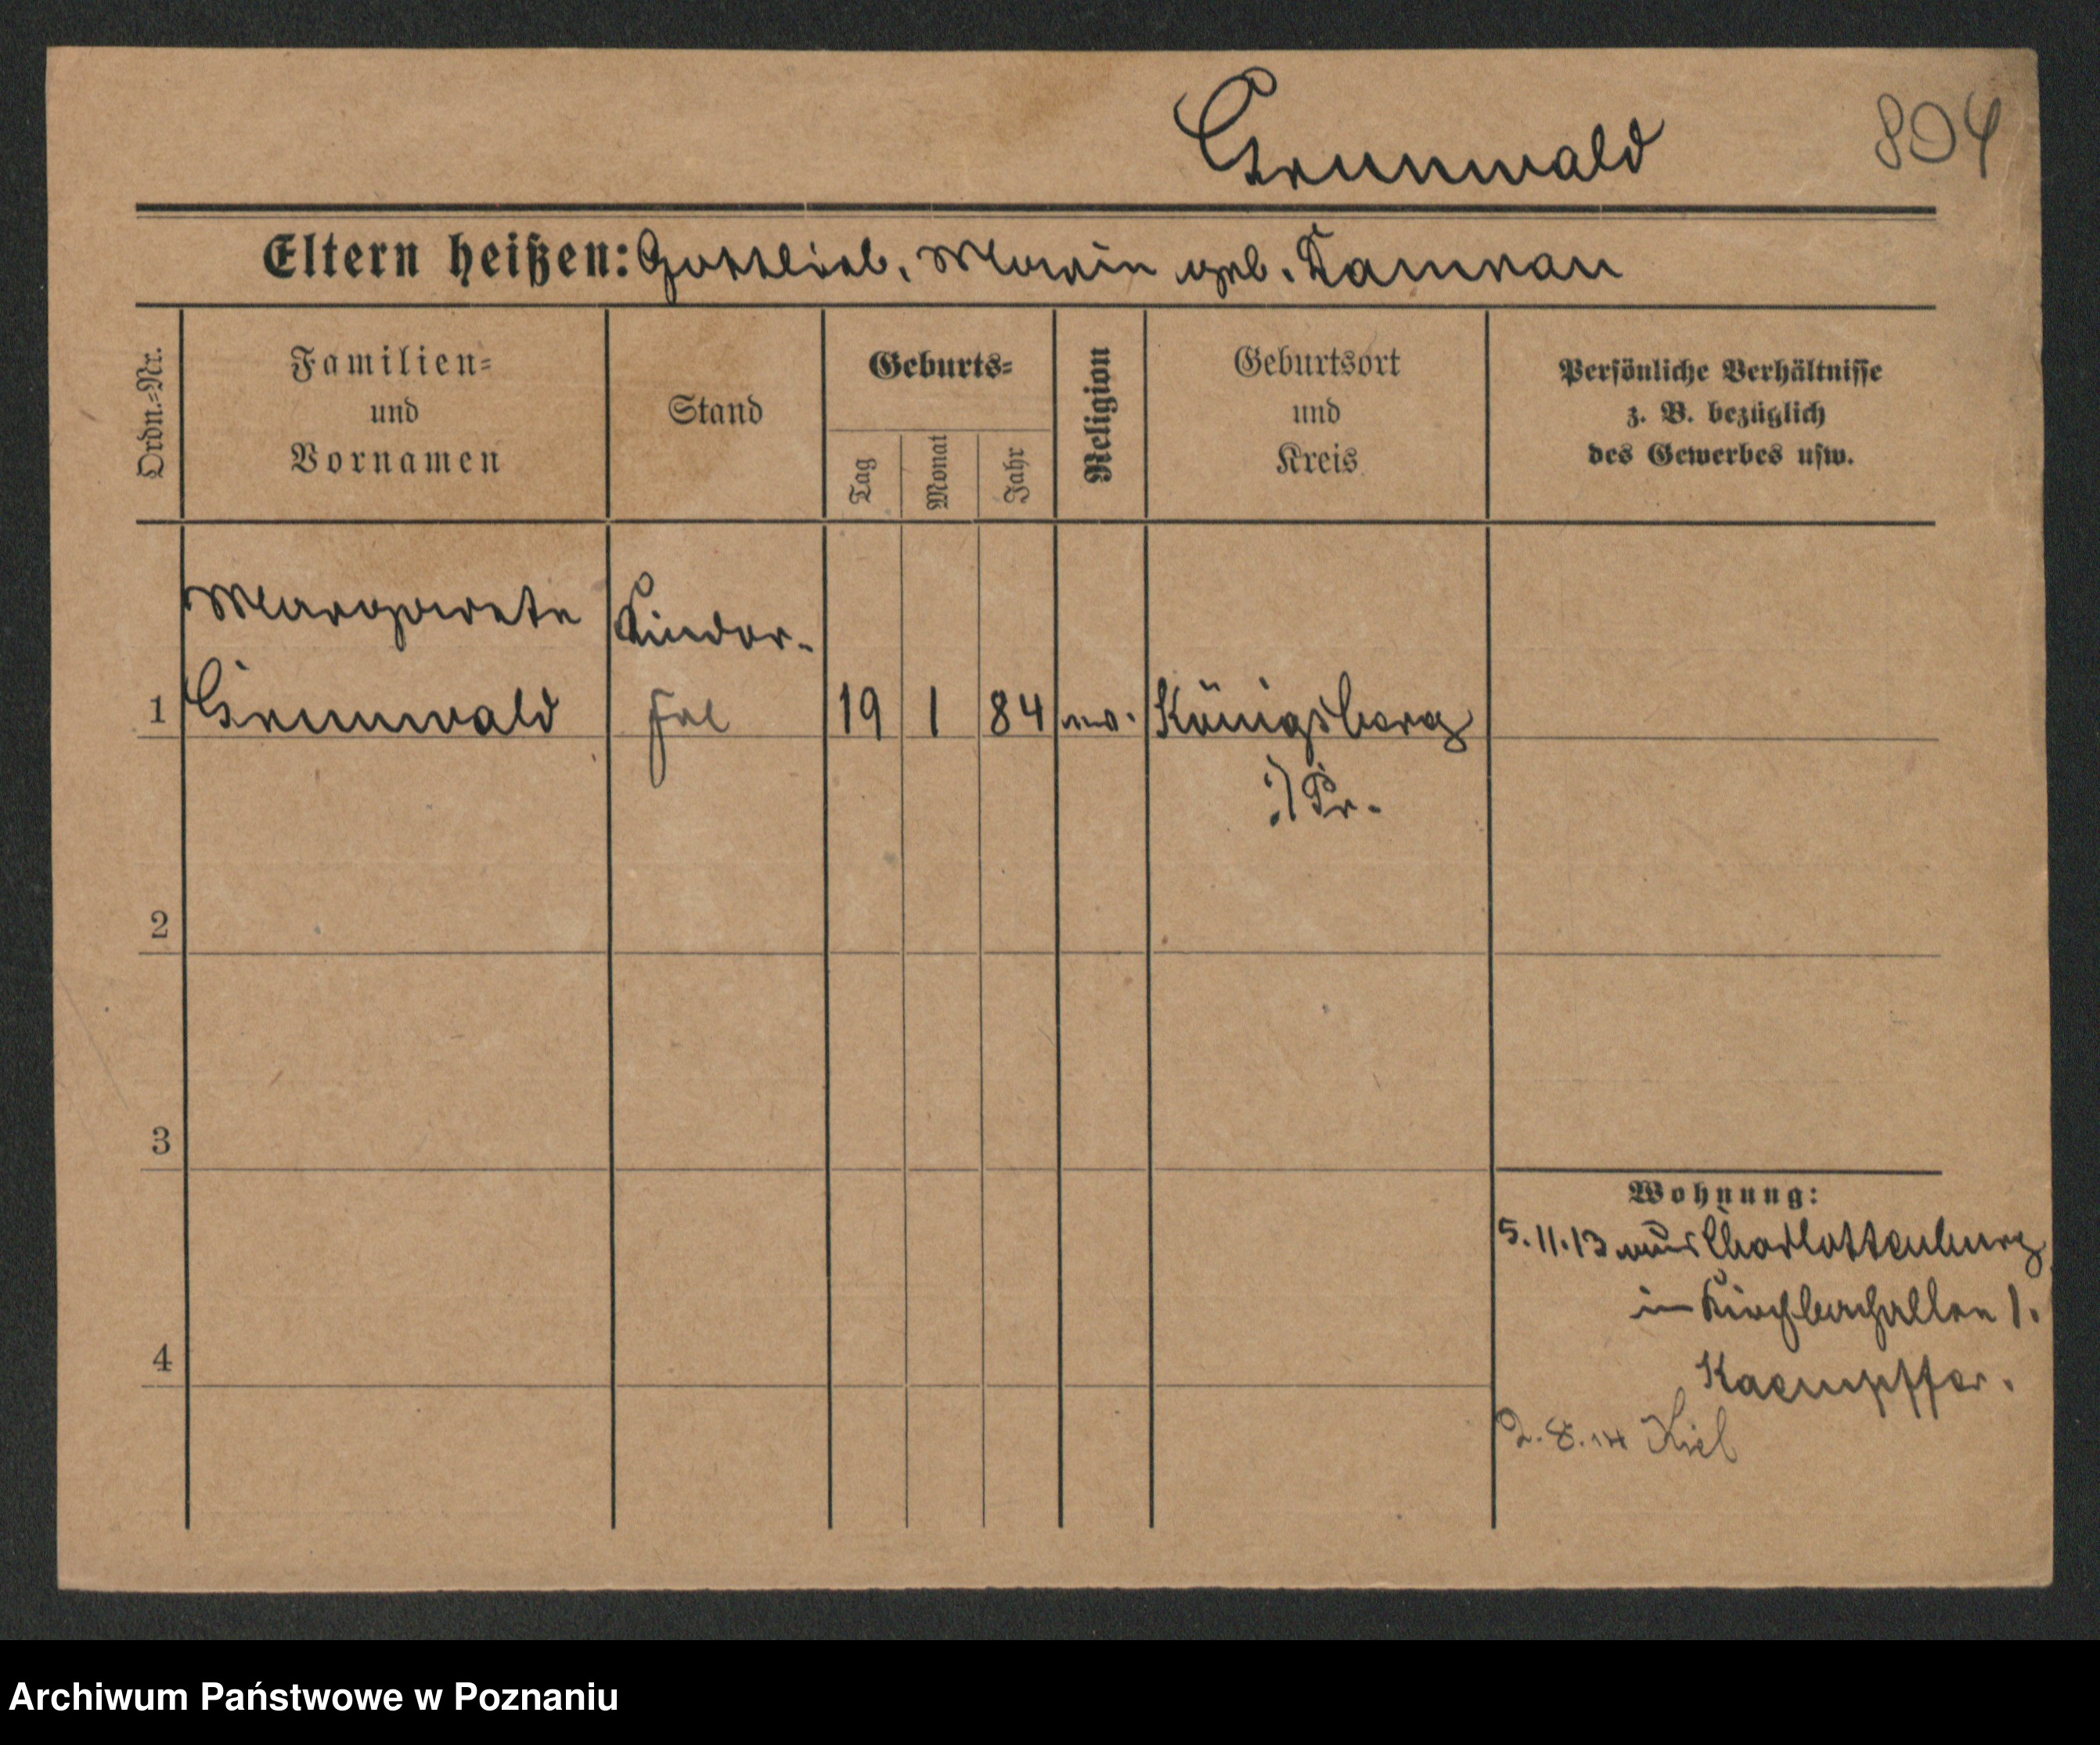 Grunwald 804
Eltern heißen: Gottlieb, Marie geb. Damrau
Ordn.-Nr.
Familien=
und
Vornamen
Stand
Geburts=
Tag
Monat
Jahr
Religion
Geburtsort
und
Kreis
Persönliche Verhältnisse
z. B. bezüglich
des Gewerbes usw.
Margarete Kinder-
1 Grunwald frl 19 1 84 ev. Königsberg
i/ Pr.
2
3
4
Wohnung:
5.11.13 aus Charlottenburg
in 1.
Kaempffer.
2.8.14 Kiel
Archiwum Państwowe w Poznaniu